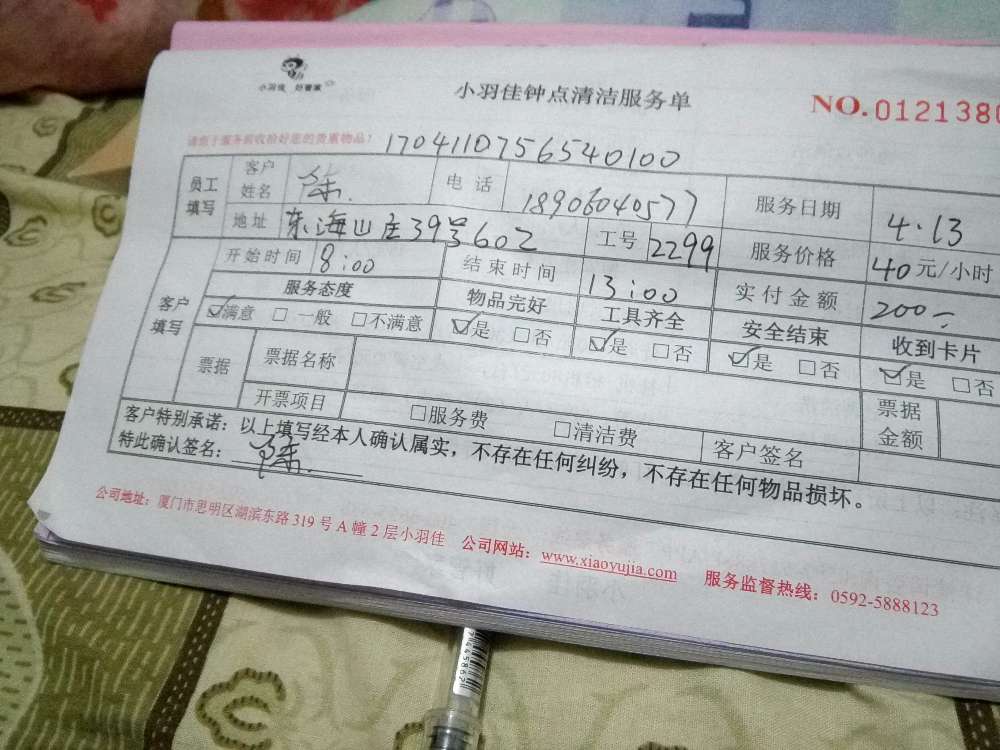 小羽佳 好管家
小羽佳钟点清洁服务单
NO.0121380
请您于服务前收拾好您的贵重物品!
170411075654010​0
员工填写 客户姓名 徐. 电话 18906040577 服务日期 4.13
地址 东海山庄39号602 工号 2299 服务价格 40元/小时
客户填写 开始时间 8:00 结束时间 13:00 实付金额 200一
服务态度 物品完好 工具齐全 安全结束 收到卡片
☑满意 □一般 □不满意 ☑是 □否 ☑是 □否 ☑是 □否 ☑是 □否
票据 票据名称 票据金额
开票项目 □服务费 □清洁费 客户签名
客户特别承诺:以上填写经本人确认属实,不存在任何纠纷,不存在任何物品损坏。
特此确认签名: 徐.
公司地址:厦门市思明区湖滨东路319号A幢2层小羽佳 公司网站:www.xiaoyujia.com 服务监督热线:0592-5888123